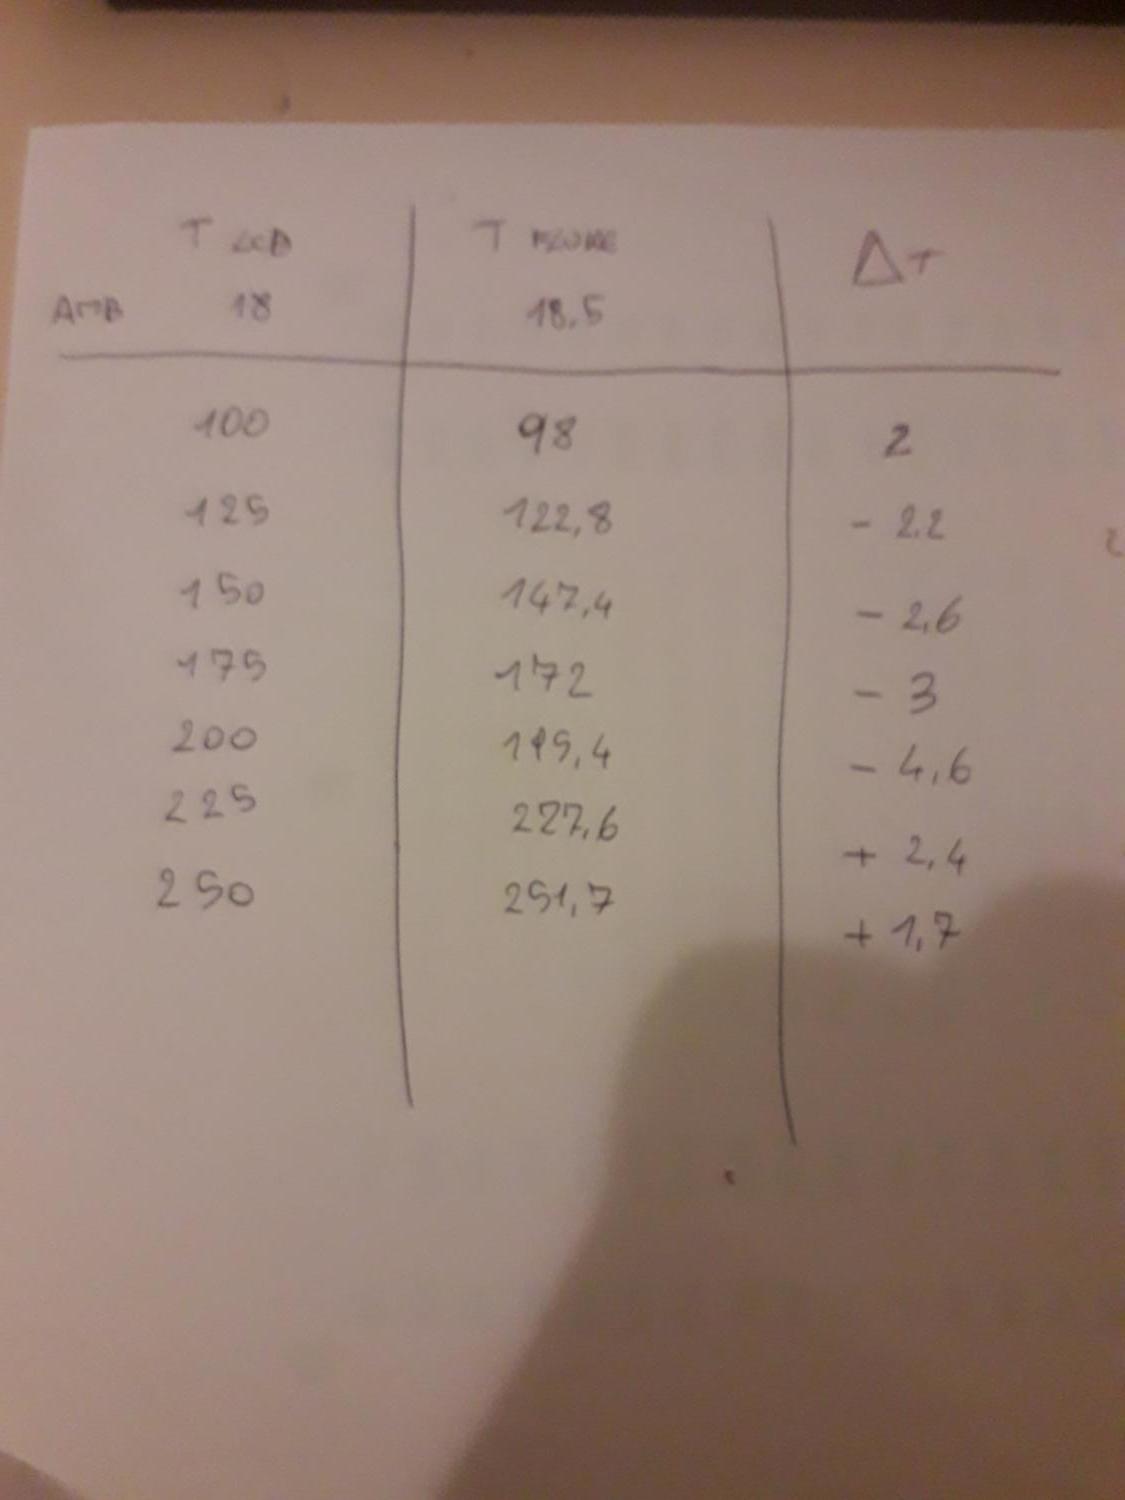 T LCD T FLUKE ΔT
AMB 18 18.5
100 98 2
125 122,8 - 2.2
150 147,4 - 2,6
175 172 - 3
200 195,4 - 4,6
225 227,6 + 2,4
250 251,7 + 1,7